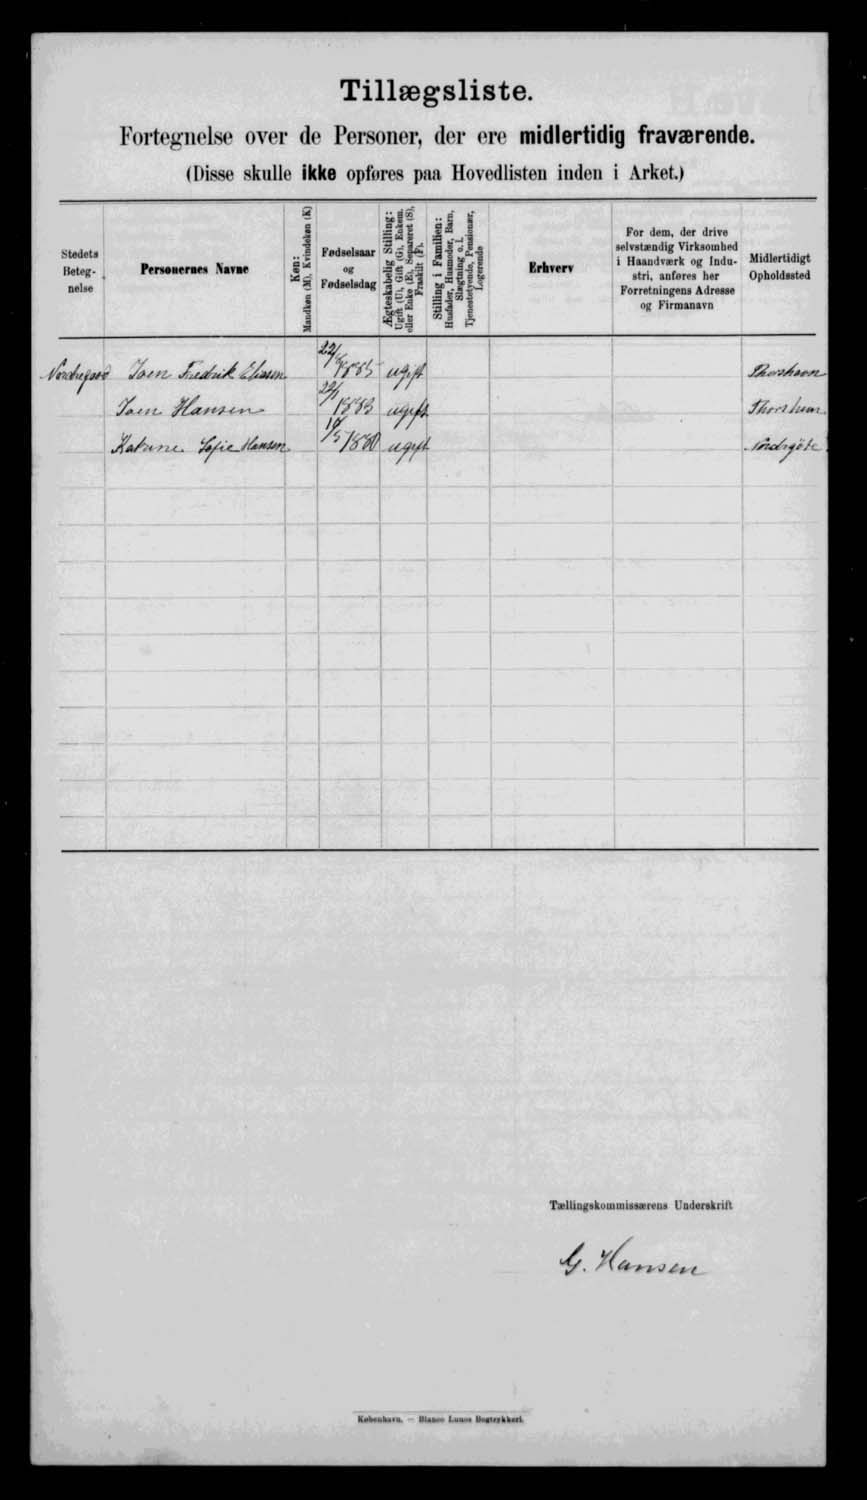 Tillægsliste.
Fortegnelse over de Personer, der ere midlertidig fraværende.
(Disse skulle ikke opføres paa Hovedlisten inden i Arket.)
Stedets Beteg-nelse
Personernes Navne
Køn: Mandkøn (M), Kvindekøn (K)
Fødselsaar og Fødselsdag
Ægteskabelig Stilling: Ugift (U), Gift (G), Enkem. eller Enke (E), Separeret (S), Fraskilt (F).
Stilling i Familien: Husfader, Husmoder, Barn, Slægtning o. l. Tjenestetyende, Pensionær, Logerende
Erhverv
For dem, der drive selvstændig Virksomhed i Haandværk og Indu-stri, anføres her Forretningens Adresse og Firmanavn
Midlertidigt Opholdssted
Joen Fredrik 1885 ugift Thorshavn
Joen Hansen 1883 ugift Thorshavn
Katrine Sofie Hansen 1880 ugift
Tællingskommissærens Underskrift
G. Hansen
København. — Bianco Lunos Bogtrykkeri.